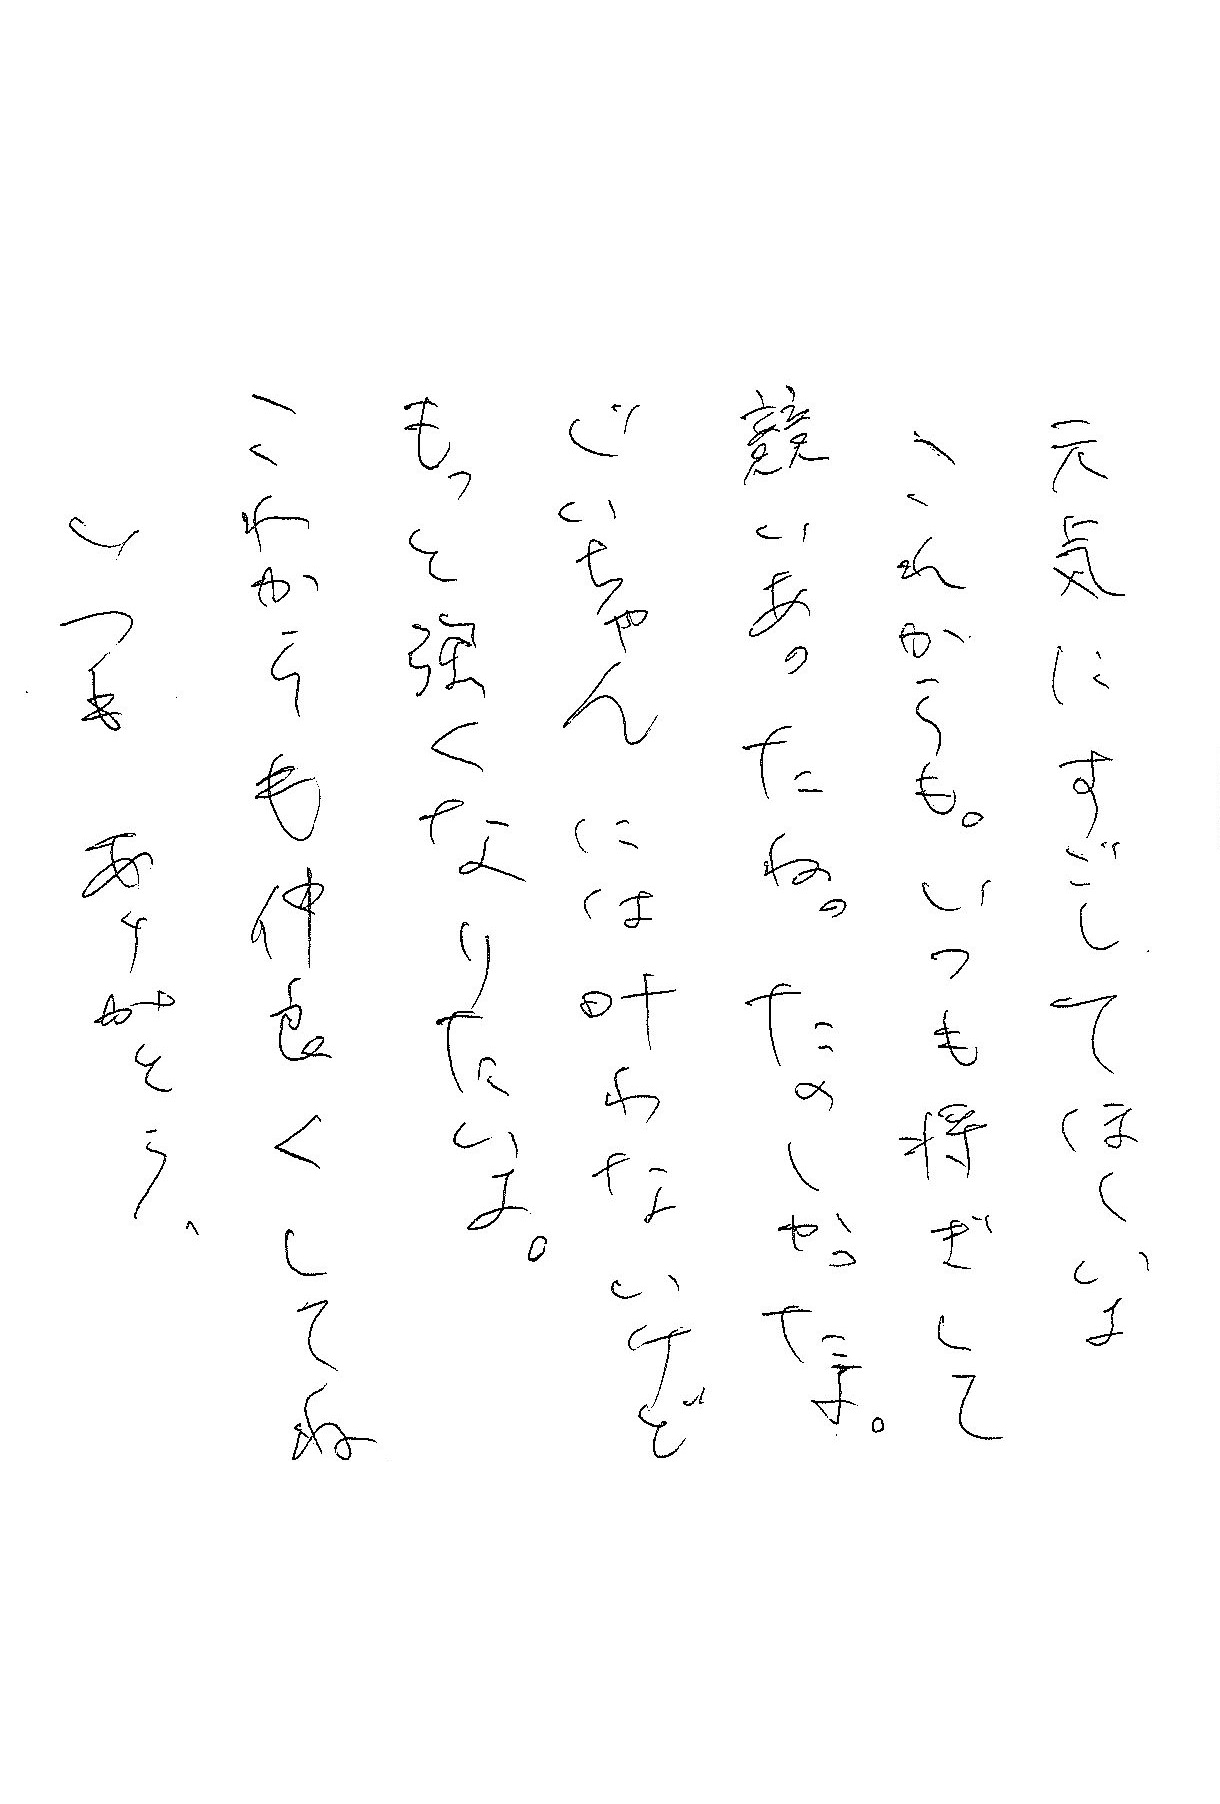 元気にすごしてほしいよ
これからも。いつも将ぎして
競いあったね。たのしかったよ。
じいちゃんには叶わないけど
もっと強くなりたいよ。
これからも仲良くしてね
いつもありがとう、